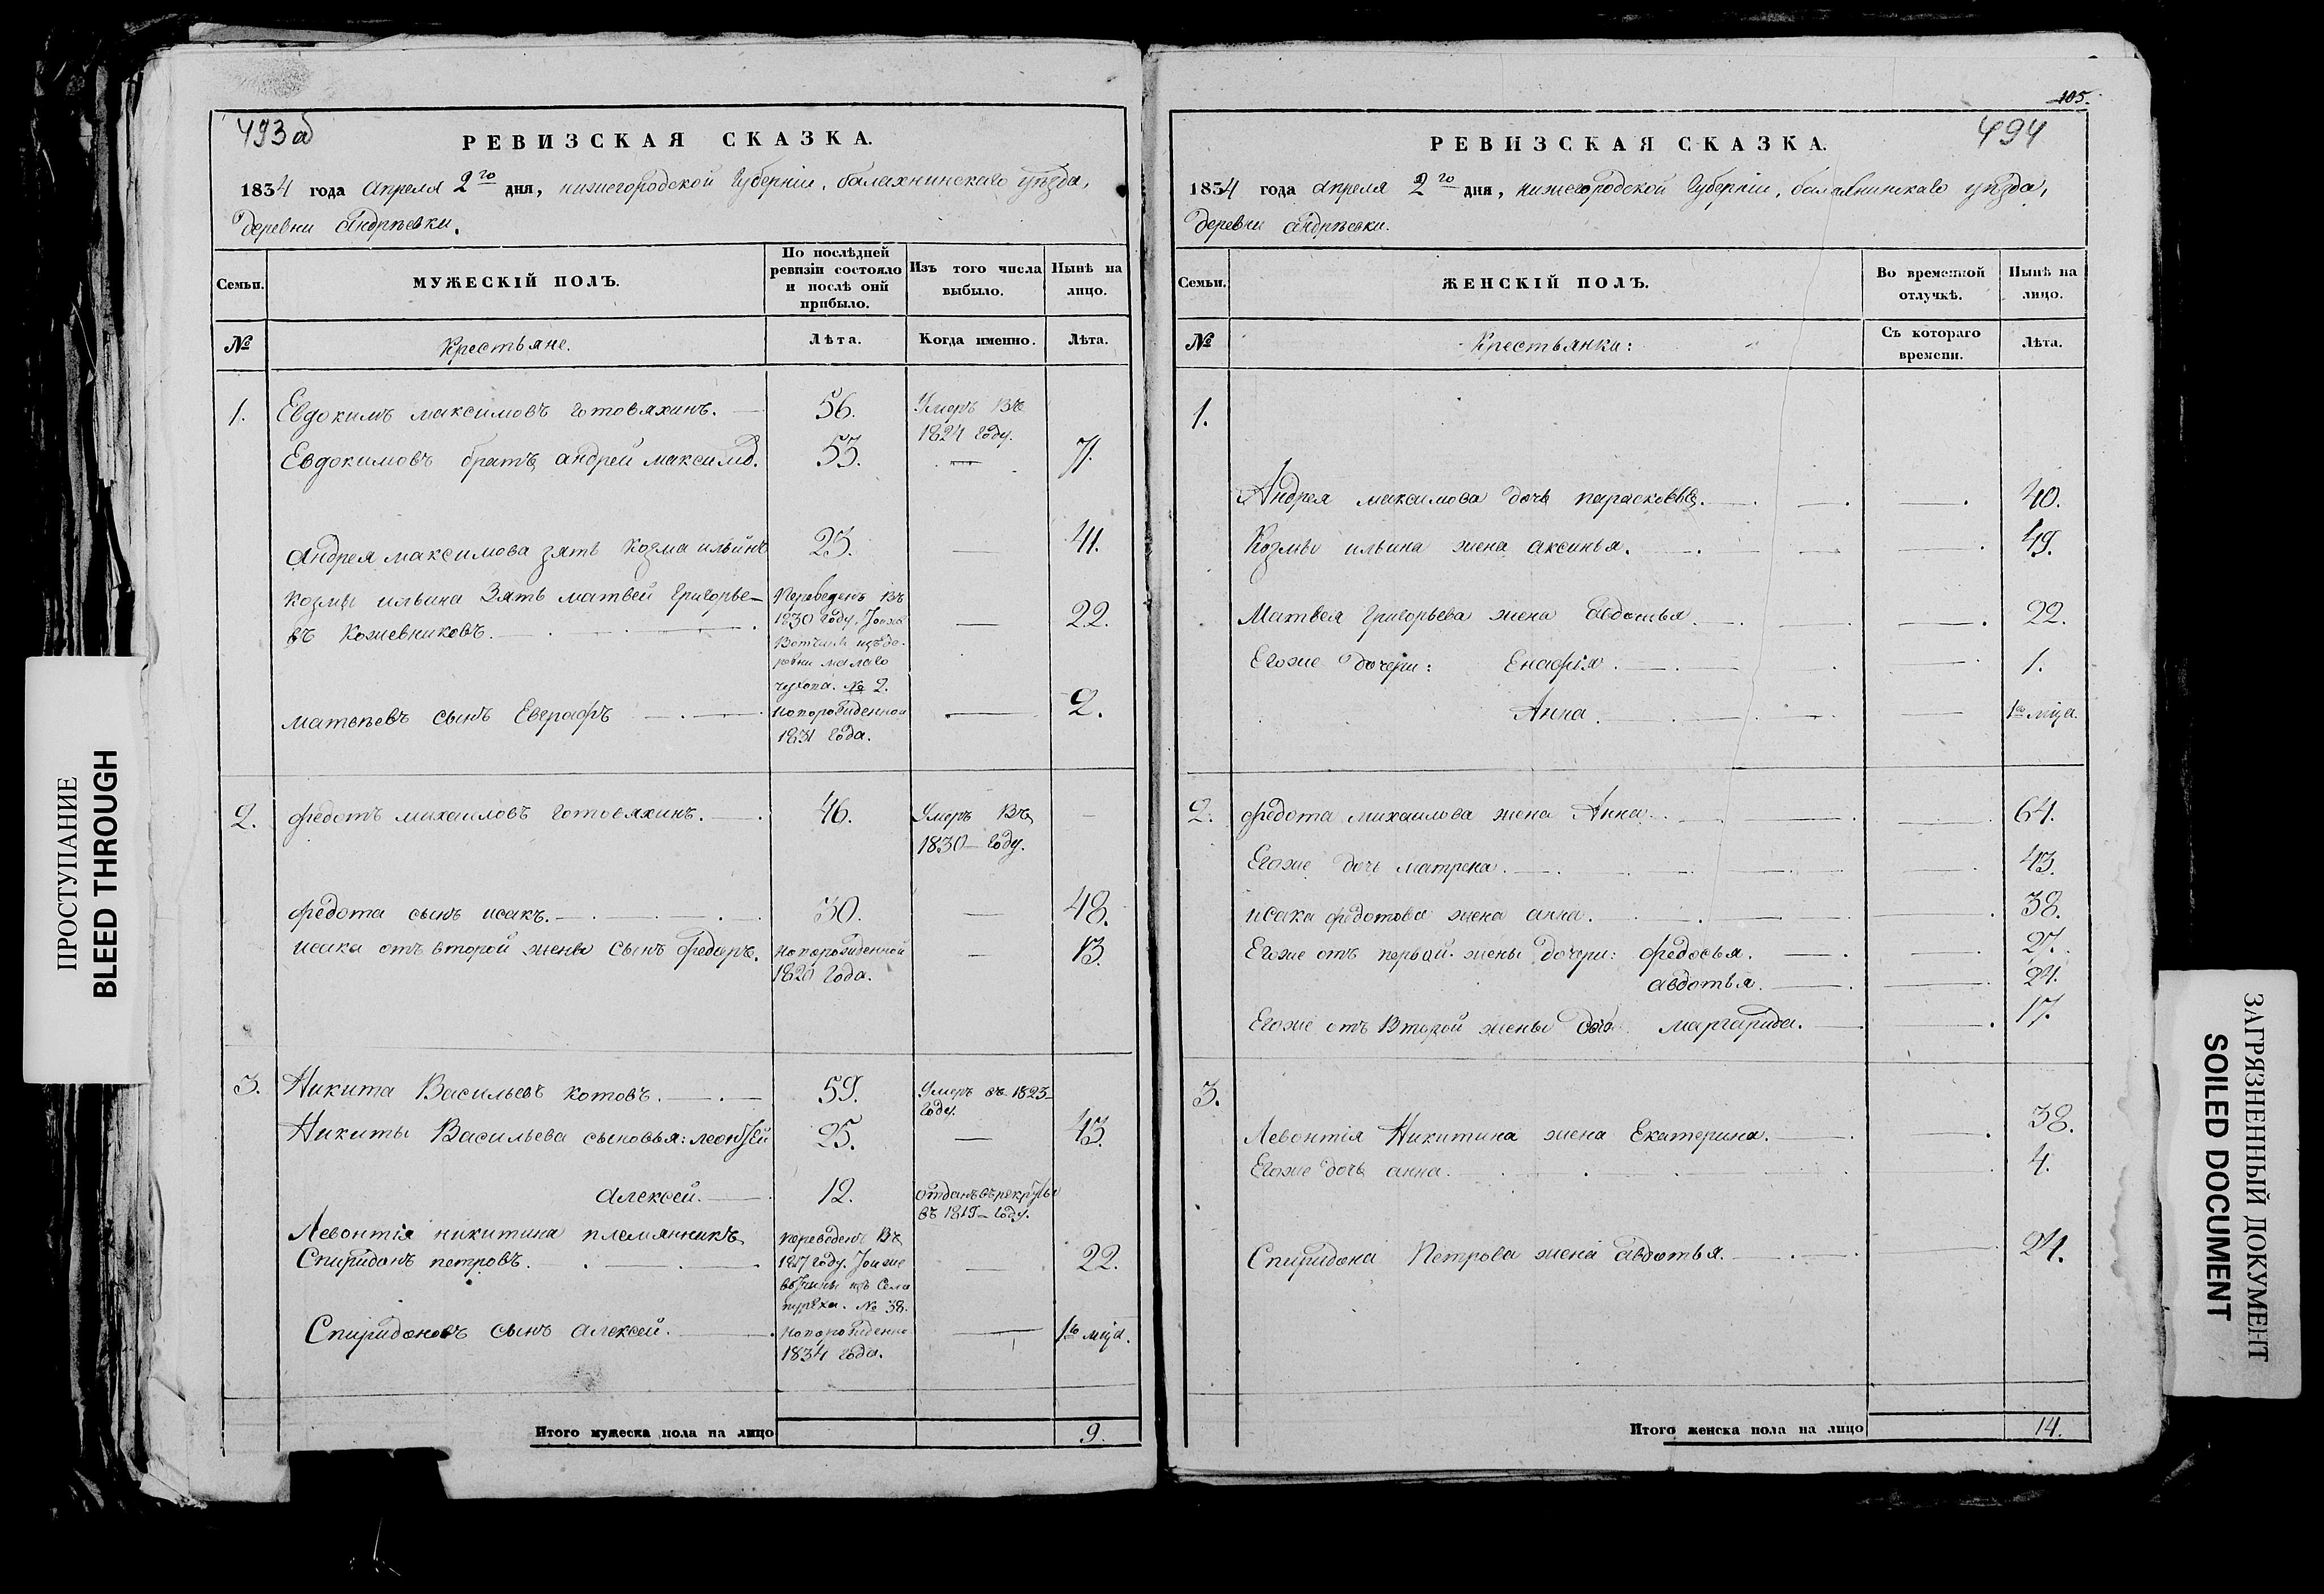 493 об
РЕВИЗСКАЯ СКАЗКА.
1834 года апреля 2го дня, нижегородской Губерніи, балахнинскаго уѣзда,
деревни андрѣевки.
Семьи.
МУЖЕСКІЙ ПОЛЪ.
По послѣдней
ревизіи состояло
и послѣ оній
прибыло.
Изъ того числа
выбыло.
Нынѣ на
лицо.
№
Крестьяне.
Лѣта.
Когда именно.
Лѣта.
1. Евдокимъ максимовъ готовяхинъ. 56. Умеръ въ
1824 году.
Евдокимовъ братъ андрей максимо. 53. 71.
андрея максимова зять козма ильинъ 23. 41.
козмы ильина Зять матвей григорье-
въ кожевниковъ. 22.
Переведенъ въ
1830 году, Тоиже
Вотчины изъ де-
ревни малаго
№ 2.
матвѣевъ сынъ Евграфъ 2.
новорожденной
1831 года.
2. федотъ михаиловъ готовяхинъ. 46. Умеръ въ
1830 году.
федота сынъ исакъ. 30. 48.
исака отъ второй жены сынъ федоръ. новорожденной 13.
1820 года.
3. Никита Васильевъ котовъ. 59. Умеръ въ 1823
году.
Никиты Васильева сыновья: леонтей 25. 43.
алексей. 12. отданъ въ рекруты
въ 1819 году.
Левонтія никитина племянникъ
Спиридонъ петровъ. 22.
переведенъ въ
1827 году. Тоиже
вотчины изъ Села
пурѣха. № 38.
Спиридоновъ сынъ алексей. новорожденно 1го мѣца.
1834 года.
Итого мужеска пола на лицо 9.
105.
494
РЕВИЗСКАЯ СКАЗКА.
1834 года апреля 2го дня, нижегородской Губерніи, балахнинскаго уѣзда,
деревни андрѣевки.
Семьи.
ЖЕНСКІЙ ПОЛЪ.
Во временной
отлучкѣ.
Нынѣ на
лицо.
№
Крестьянки:
Съ котораго
времени.
Лѣта.
1.
Андрея максимова дочь парасковья. 40.
Козмы ильина жена аксинья. 49.
Матвея григорьева жена авдотья. 22.
Егоже дочери: Енафія. 1.
Анна. 1го мѣца.
2. федота михаилова жена Анна. 64.
Егоже дочь матрена. 43.
исака федотова жена анна. 38.
Егоже отъ первой жены дочери: федосья. 27.
авдотья. 24.
Егоже отъ Второй жены дочь маргарида. 17.
3.
Левонтія Никитина жена Екатерина. 38.
Егоже дочь анна. 4.
Спиридона Петрова жена авдотья. 24.
Итого женска пола на лицо 14.
ПРОСТУПАНИЕ
BLEED THROUGH
ЗАГРЯЗНЕННЫЙ ДОКУМЕНТ
SOILED DOCUMENT